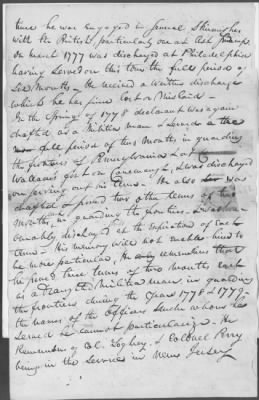 time he was engaged in several Skirmishes
with the British, particularly one at Ash Swamp.
In March 1777 was discharged at Philadelphia
having served on this tour the full period of
Six Months - He received a written discharge
which he has since lost or mislaid -
In the Spring of 1778 declarant was again
drafted as a Militia man & served a
full period of two months in guarding
the frontiers of Pennsylvania & at
Wallaces fort on Conemaugh, & was discharged
on serving out his term. He also was
drafted & served two other terms of
months, in guarding the frontiers, & was hon-
ourably discharged at the expiration of each
term - His memory will not enable him to
be more particular, He only remembers that
he served three terms of two months each
as a drafted Militia man in guarding
the frontiers during the years 1778 & 1779 -
the names of the Officers under whom he
served he cannot particularize. He
Remembers Col. Loghry, & Colonel Perry
being in the service in New Jersey